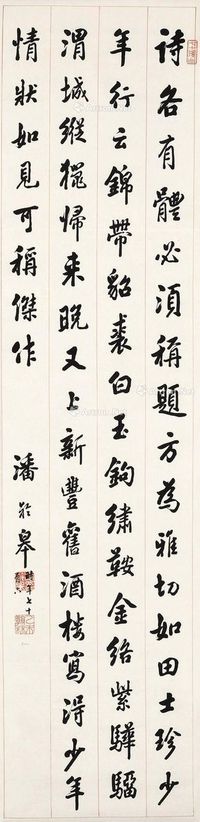 詩各有體必須稱題方為雅切如田士珍少
年行云錦帶貂裘白玉鉤繡鞍金絡紫驊騮
渭城縱獵歸來晚又上新豐舊酒樓寫得少年
情狀如見可稱傑作
潘齡皋
時年七十